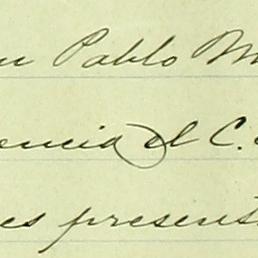 Pablo
encia el C.
es present